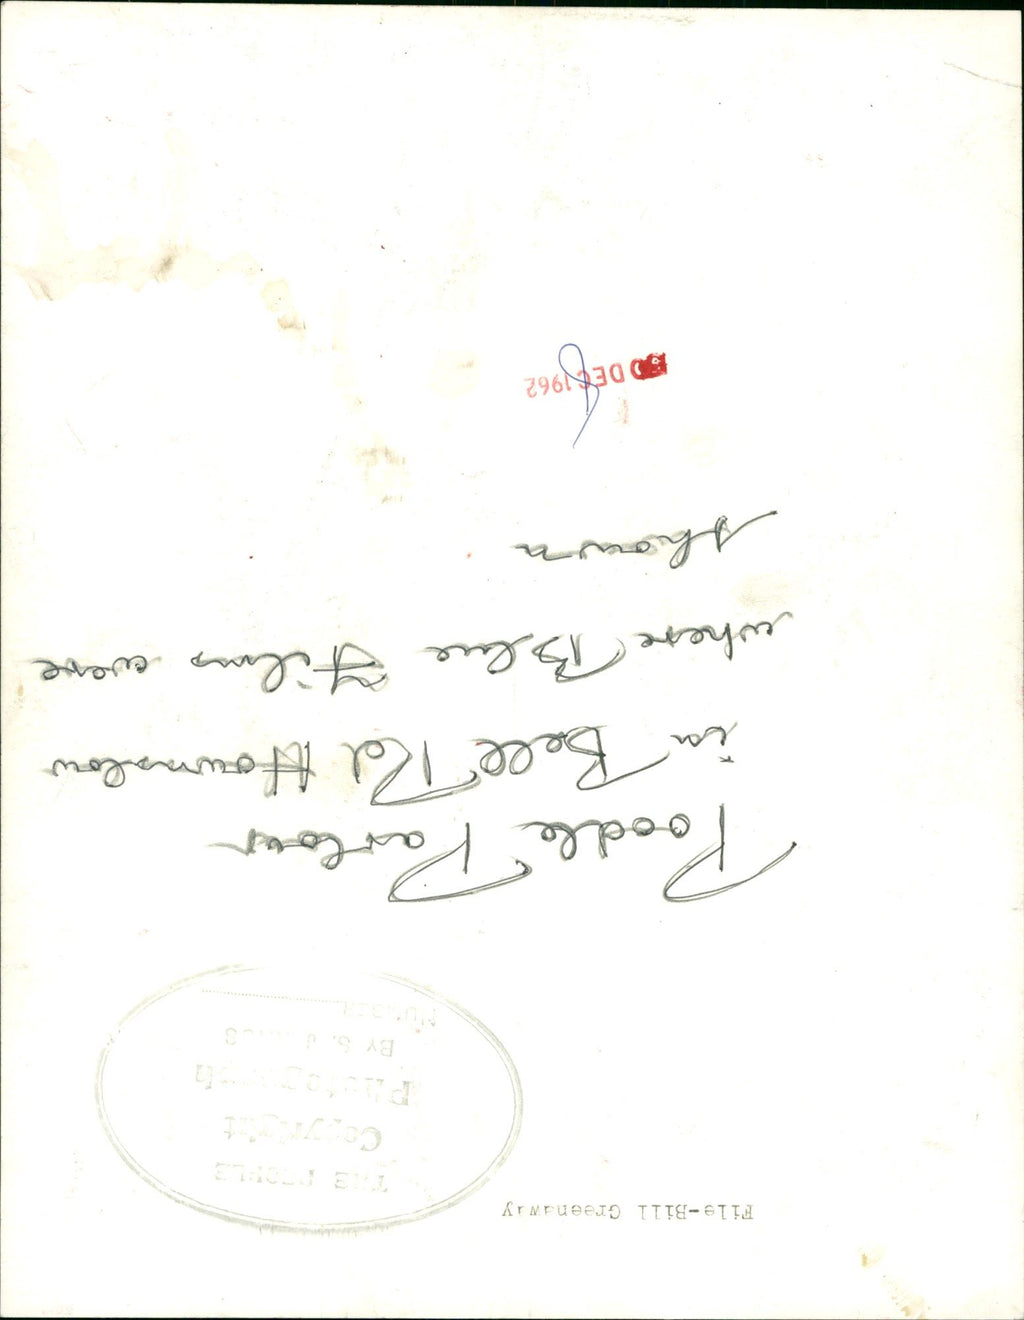 File-Bill Greenaway
THE PEOPLE
Copyright
Photograph
BY S.
NUMBER
Poodle Parlour
in Bell Rd Hounslow
where Blue Films were
shown
DEC 1962